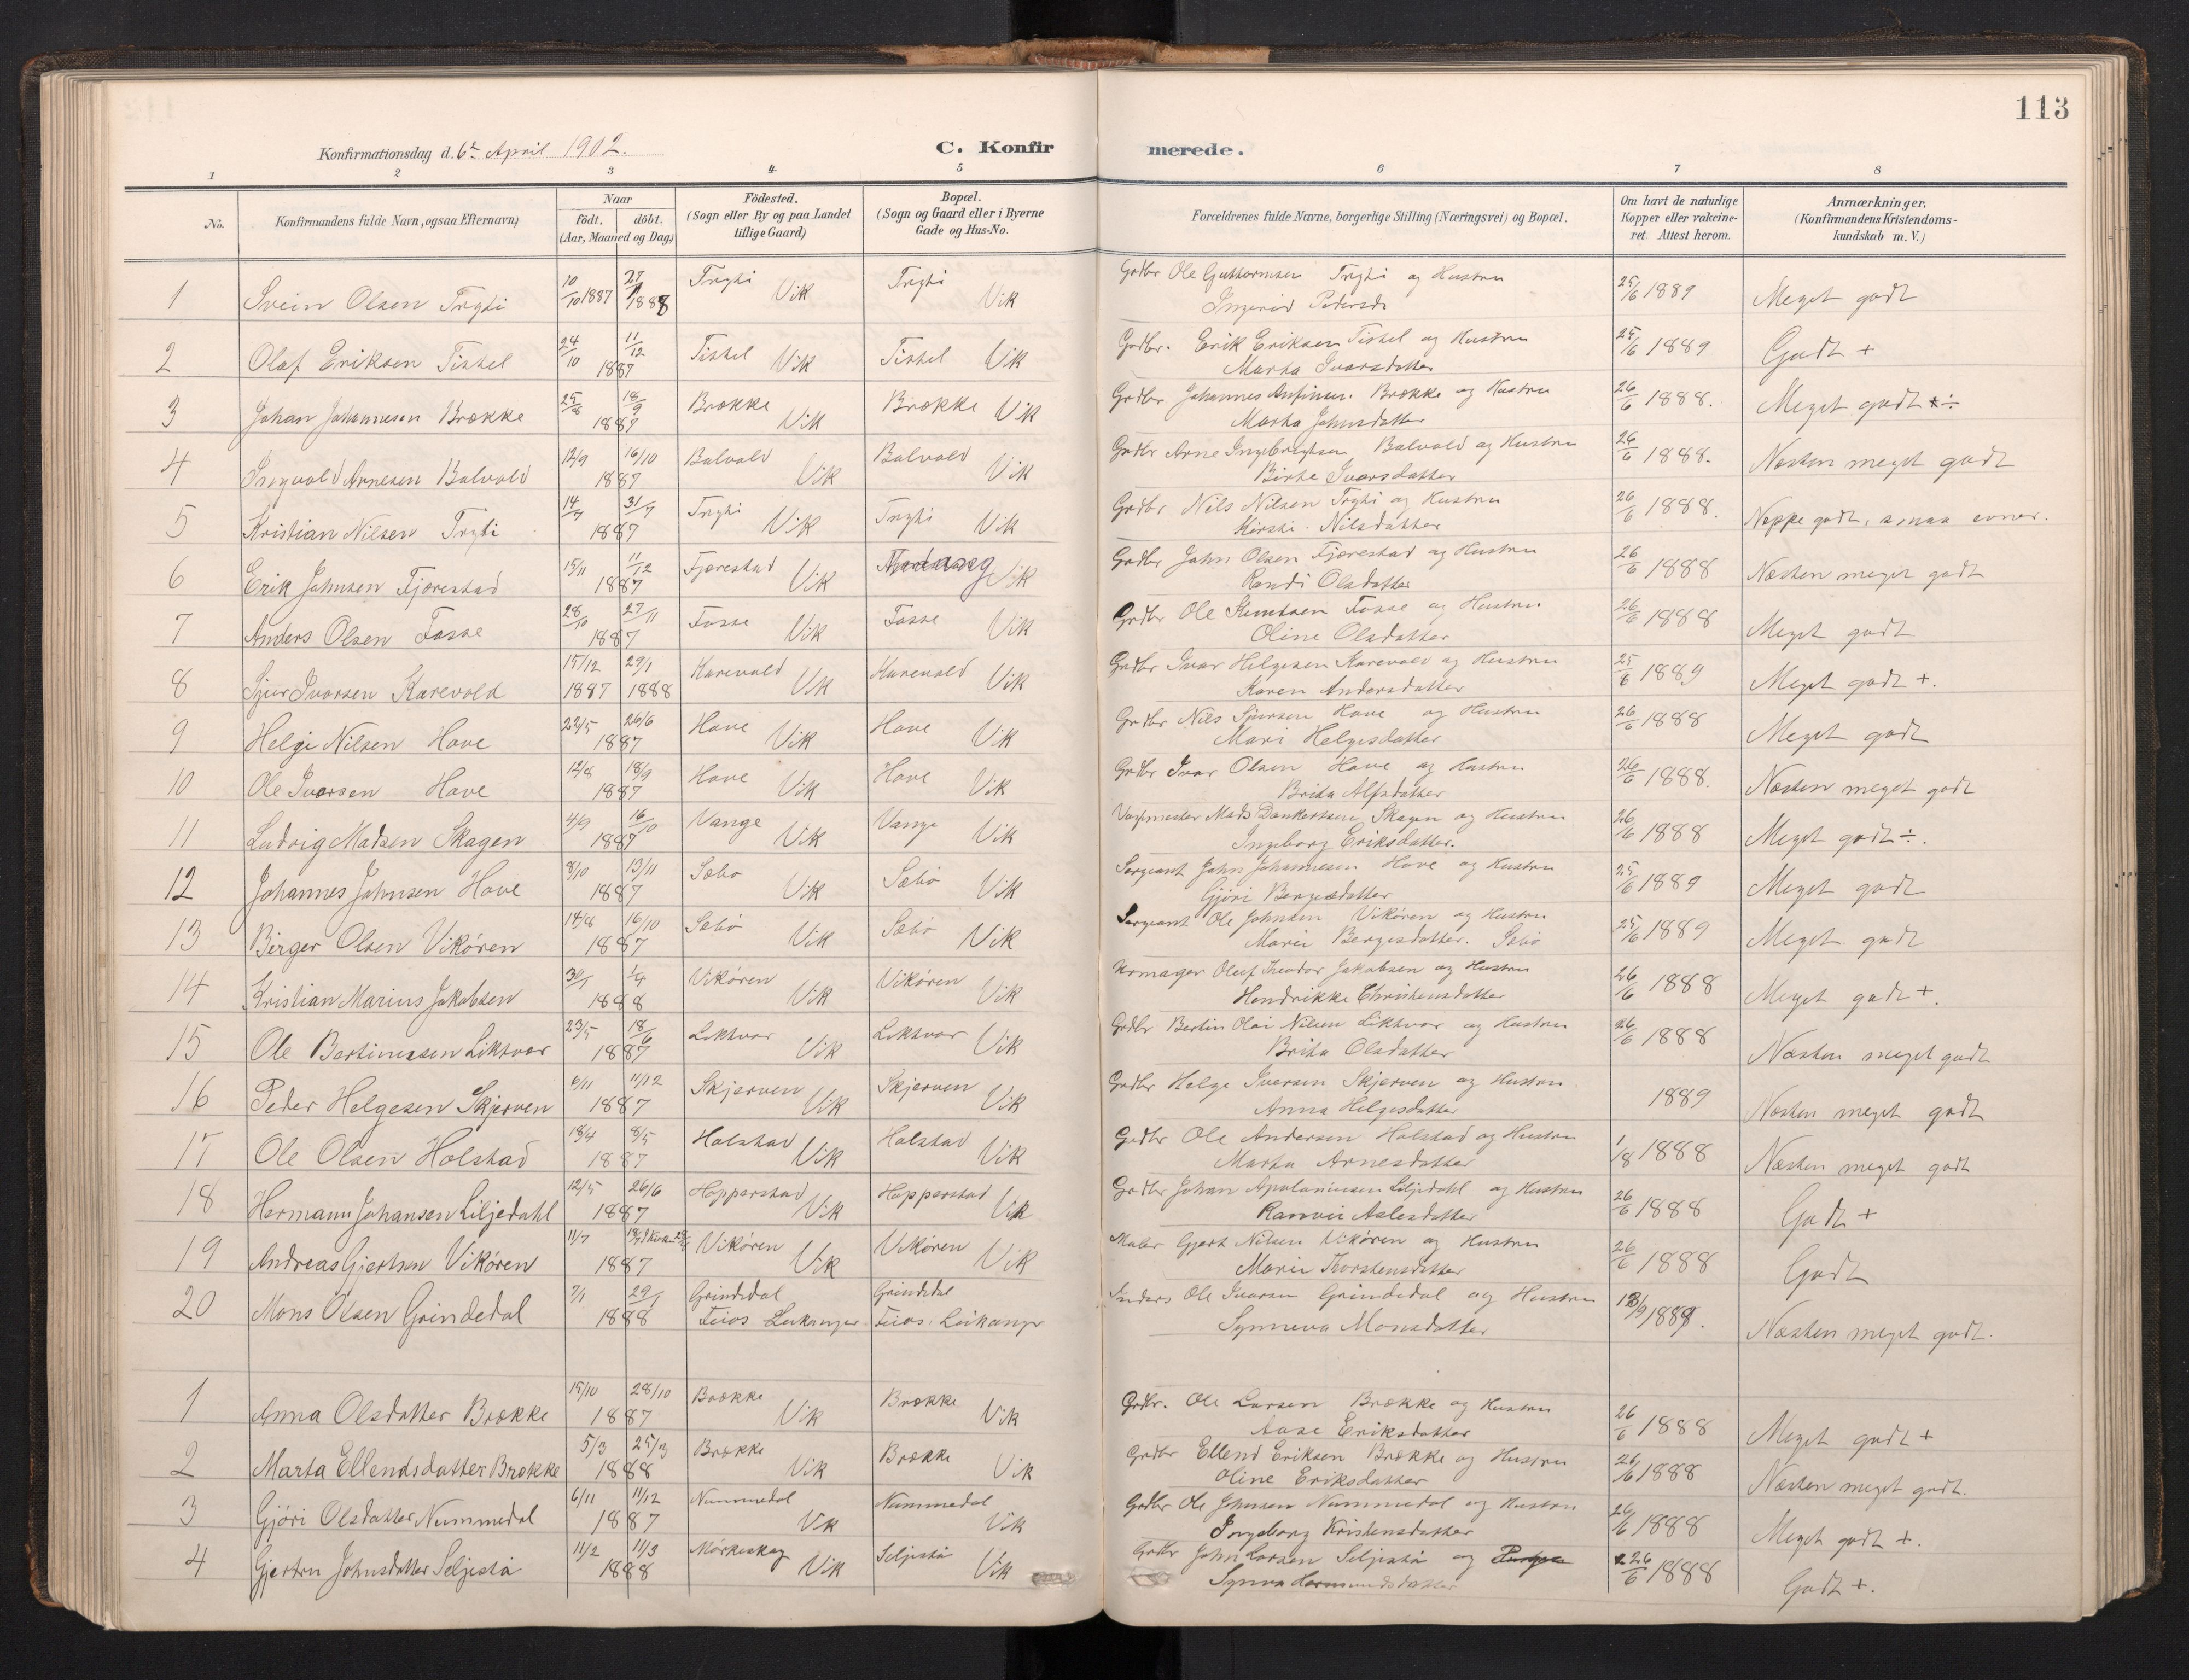 113
Konfirmationsdag d. 6te April 1902.
C. Konfirmerede.
1 2 3 4 5 6 7 8
No. Konfirmandens fulde Navn, ogsaa Efternavn) Naar födt. döbt. (Aar, Maaned og Dag) Födested. (Sogn eller By og paa Landet tillige Gaard) Bopæl. (Sogn og Gaard eller i Byerne Gade og Hus-No. Forældrenes fulde Navne, borgerlige Stilling (Næringsvei) og Bopæl. Om havt de naturlige Kopper eller vakcineret. Attest herom. Anmærkninger. (Konfirmandens Kristendomskundskab m. V.)
1 Svein Olsen Tryti 10/10 1887 1888 Tryti Vik Tryti Vik Grdbr Ole Guttormsen Tryti og Hustru 25/6 1889 Meget godt
Ingerid Pedersdr
2 Olaf Eriksen Tistel 24/10 11/12 1887 Tistel Vik Tistel Vik Grdbr. Erik Eriksen Tistel og Hustru 25/6 1889 Godt +
Marta Ivarsdatter
3 Johan Johannesen Brække 25/8 18/9 1887 Brække Vik Brække Vik Grdbr Johannes Anfinsen Brække og Hustru 26/6 1888. Meget godt ÷
Marta Johnsdatter
4 Ingvald Arnesen Bolvold 12/9 16/10 1887 Bolvold Vik Bolvold Vik Grdbr Arne Ingebrigtsen Bolvold og Hustru 26/6 1888. Næsten meget godt
Birte Ivarsdatter
5 Kristian Nilsen Tryti 14/7 31/7 1887 Tryti Vik Tryti Vik Grdbr Nils Nilsen Tryti og Hustru 26/6 1888. Neppe godt, smaa evner.
Kirsti Nilsdatter
6 Erik Johnsen Fjærestad 15/11 11/12 1887 Fjærestad Vik Vik Grdbr John Olsen Fjærestad og Hustru 26/6 1888 Næsten meget godt
Randi Olsdatter
7 Anders Olsen Fosse 28/10 27/11 1887 Fosse Vik Fosse Vik Grdbr Ole Knutsen Fosse og Hustru 26/6 1888 Meget godt
Oline Olsdatter
8 Sjur Ivarsen Karevold 15/12 1887 29/1 1888 Karevold Vik Karevold Vik Grdbr Ivar Helgesen Karevold og Hustru 25/6 1889 Meget godt +.
Karen Andersdatter
9 Helge Nilsen Hove 22/5 26/6 1887 Hove Vik Hove Vik Grdbr Nils Sjursen Hove og Hustru 26/6 1888 Meget godt
Mari Helgesdatter
10 Ole Ivarsen Hove 12/8 18/9 1887 Hove Vik Hove Vik Grdbr Ivar Olsen Hove og Hustru 26/6 1888. Næsten meget godt
Brita Alfsdatter
11 Ludvig Madsen Skagen 4/9 16/10 1887 Vange Vik Vange Vik Veimester Mads Dankertsen Skagen og Hustru 26/6 1888 Meget godt ÷.
Ingeborg Eriksdatter.
12 Johannes Johnsen Hove 8/10 13/11 1887 Sæbø Vik Sæbø Vik Sergeant John Johannesen Hove og Hustru 25/6 1889 Meget godt
Gjöri Bergesdatter
13 Birger Olsen Vikören 14/8 16/10 1887 Sæbö Vik Sæbö Vik Sergeant Ole Johnsen Vikören og Hustru 25/6 1889 Meget godt
Marie Bergesdatter. Sæbö
14 Kristian Marius Jakobsen 30/1 1/4 1888 Vikören Vik Vikören Vik Urmager Oluf Theodor Jakobsen og Hustru 26/6 1888 Meget godt +.
Hendrikke Christensdatter
15 Ole Bertinussen Liktvor 23/5 18/6 1887 Liktvor Vik Liktvor Vik Grdbr Bertin Olai Nilsen Liktvor og Hustru 26/6 1888 Næsten meget godt
Brita Olsdatter
16 Peder Helgesen Skjerven 6/11 11/12 1887 Skjerven Vik Skjerven Vik Grdbr Helge Iversen Skjerven og Hustru 1889 Næsten meget godt
Anna Helgesdatter
17 Ole Olsen Holstad 18/4 8/5 1887 Holstad Vik Holstad Vik Grdbr Ole Andersen Holstad og Hustru 1/8 1888 Næsten meget godt
Marta Arnesdatter
18 Hermann Johansen Liljedahl 12/5 26/6 1887 Hopperstad Vik Hopperstad Vik Grdbr Johan Apoloniusen Liljedahl og Hustru 26/6 1888 Godt +
Ranvei Aslesdatter
19 Andreas Gjertsen Vikören 11/7 1887 Vikören Vik Vikören Vik Maler Gjert Nilsen Vikören og Hustru 26/6 1888 Godt
Marie Thorstensdatter
20 Mons Olsen Grindedal 7/1 29/1 1888 Grindedal Feios Leikanger Grindedal Feios. Leikanger Inders Ole Ivarsen Grindedal og Hustru 13/9 1889. Næsten meget godt.
Synneva Monsdatter
1 Anna Olsdatter Brække 15/10 28/10 1887 Brække Vik Brække Vik Grdbr. Ole Larsen Brække og Hustru 26/6 1888 Meget godt +
Aase Eriksdatter
2 Marta Ellendsdatter Brække 5/3 25/3 1888 Brække Vik Brække Vik Grdbr Ellend Eriksen Brække og Hustru 26/6 1888 Næsten meget godt.
Oline Eriksdatter
3 Gjöri Olsdatter Nummedal 6/11 11/12 1887 Nummedal Vik Nummedal Vik Grdbr Ole Johnsen Nummedal og Hustru 26/6 1888 Meget godt +.
Ingeborg Kristensdatter
4 Gjertru Johnsdatter Seljestå 11/2 11/3 1888 Mörkeskog Vik Seljestå Vik Grdbr John Larsen Seljestå og 26/6 1888 Godt +.
Synva Hermundsdatter